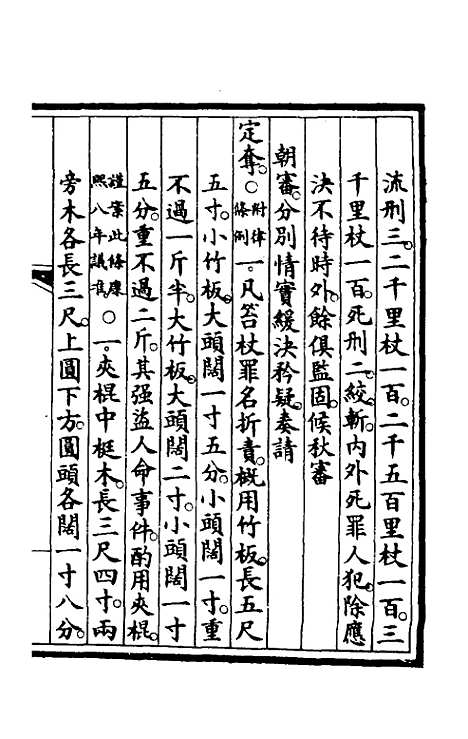 流刑三。二千里杖一百。二千五百里杖一百。三
千里杖一百。死刑二。絞。斬。内外死罪人犯。除應
決不待時外。餘俱監固。候秋審
朝審。分別情實緩決矜疑。奏請
定奪。○附律條例一。凡笞杖罪名折責。概用竹板。長五尺
五寸。小竹板。大頭闊一寸五分。小頭闊一寸。重
不過一斤半。大竹板。大頭闊二寸。小頭闊一寸
五分。重不過二斤。其强盜人命事件。酌用夾棍。
謹案此條康熙八年議准。○一。夾棍中梃木。長三尺四寸。兩
旁木各長三尺。上圓下方。圓頭各闊一寸八分。